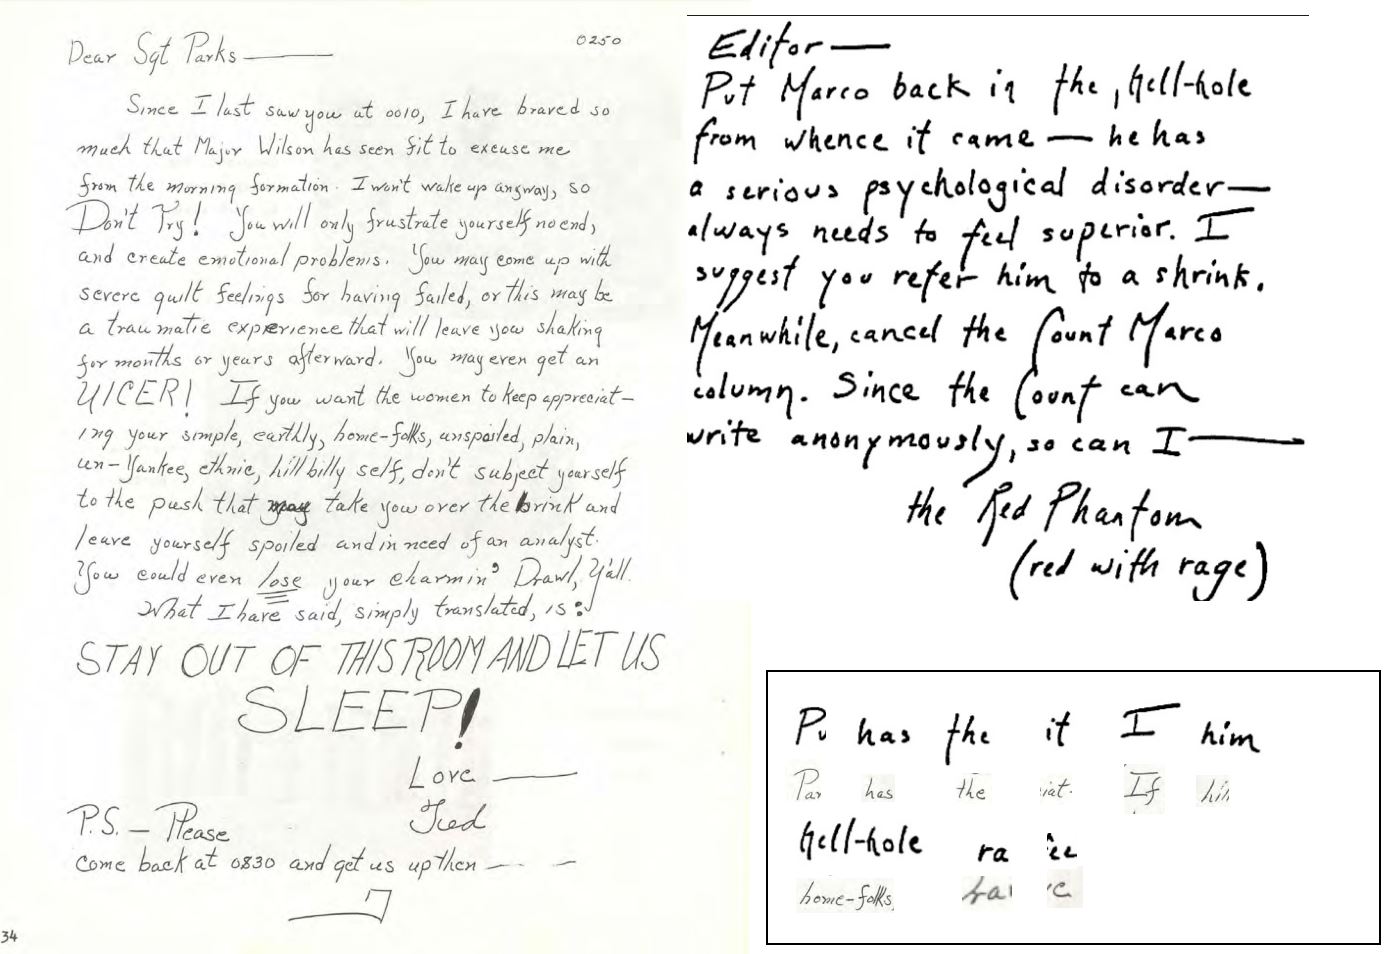 0250
Dear Sgt Parks —
Since I last saw you at 0010, I have braved so
much that Major Wilson has seen fit to excuse me
from the morning formation. I won't wake up angway, so
Don't Try! You will only frustrate yourself no end,
and create emotional problems. You may come up with
severe guilt feelings for having failed, or this may be
a traumatic experience that will leave you shaking
for months or years afterward. You may even get an
UlCER! If you want the women to keep appreciat-
ing your simple, earthly, home-folks, unspoiled, plain,
un-Yankee, ethnic, hillbilly self, don't subject yourself
to the push that may take you over the brink and
leave yourself spoiled and in need of an analyst.
You could even lose your charmin' Drawl, Y'all.
What I have said, simply translated, is:
STAY OUT OF THIS ROOM AND LET US
SLEEP!
Love —
P.S. - Please
come back at 0830 and get us up then — - —
34
Editor —
Put Marco back in the, hell-hole
from whence it came — he has
a serious psychological disorder —
always needs to feel superior. I
suggest you refer him to a shrink.
Meanwhile, cancel the Count Marco
column. Since the Count can
write anonymously, so can I —
the Red Phantom
(red with rage)
Pu has the it I him
Par has the iat. If hil
hell-hole ra ee
home-folks, bra e